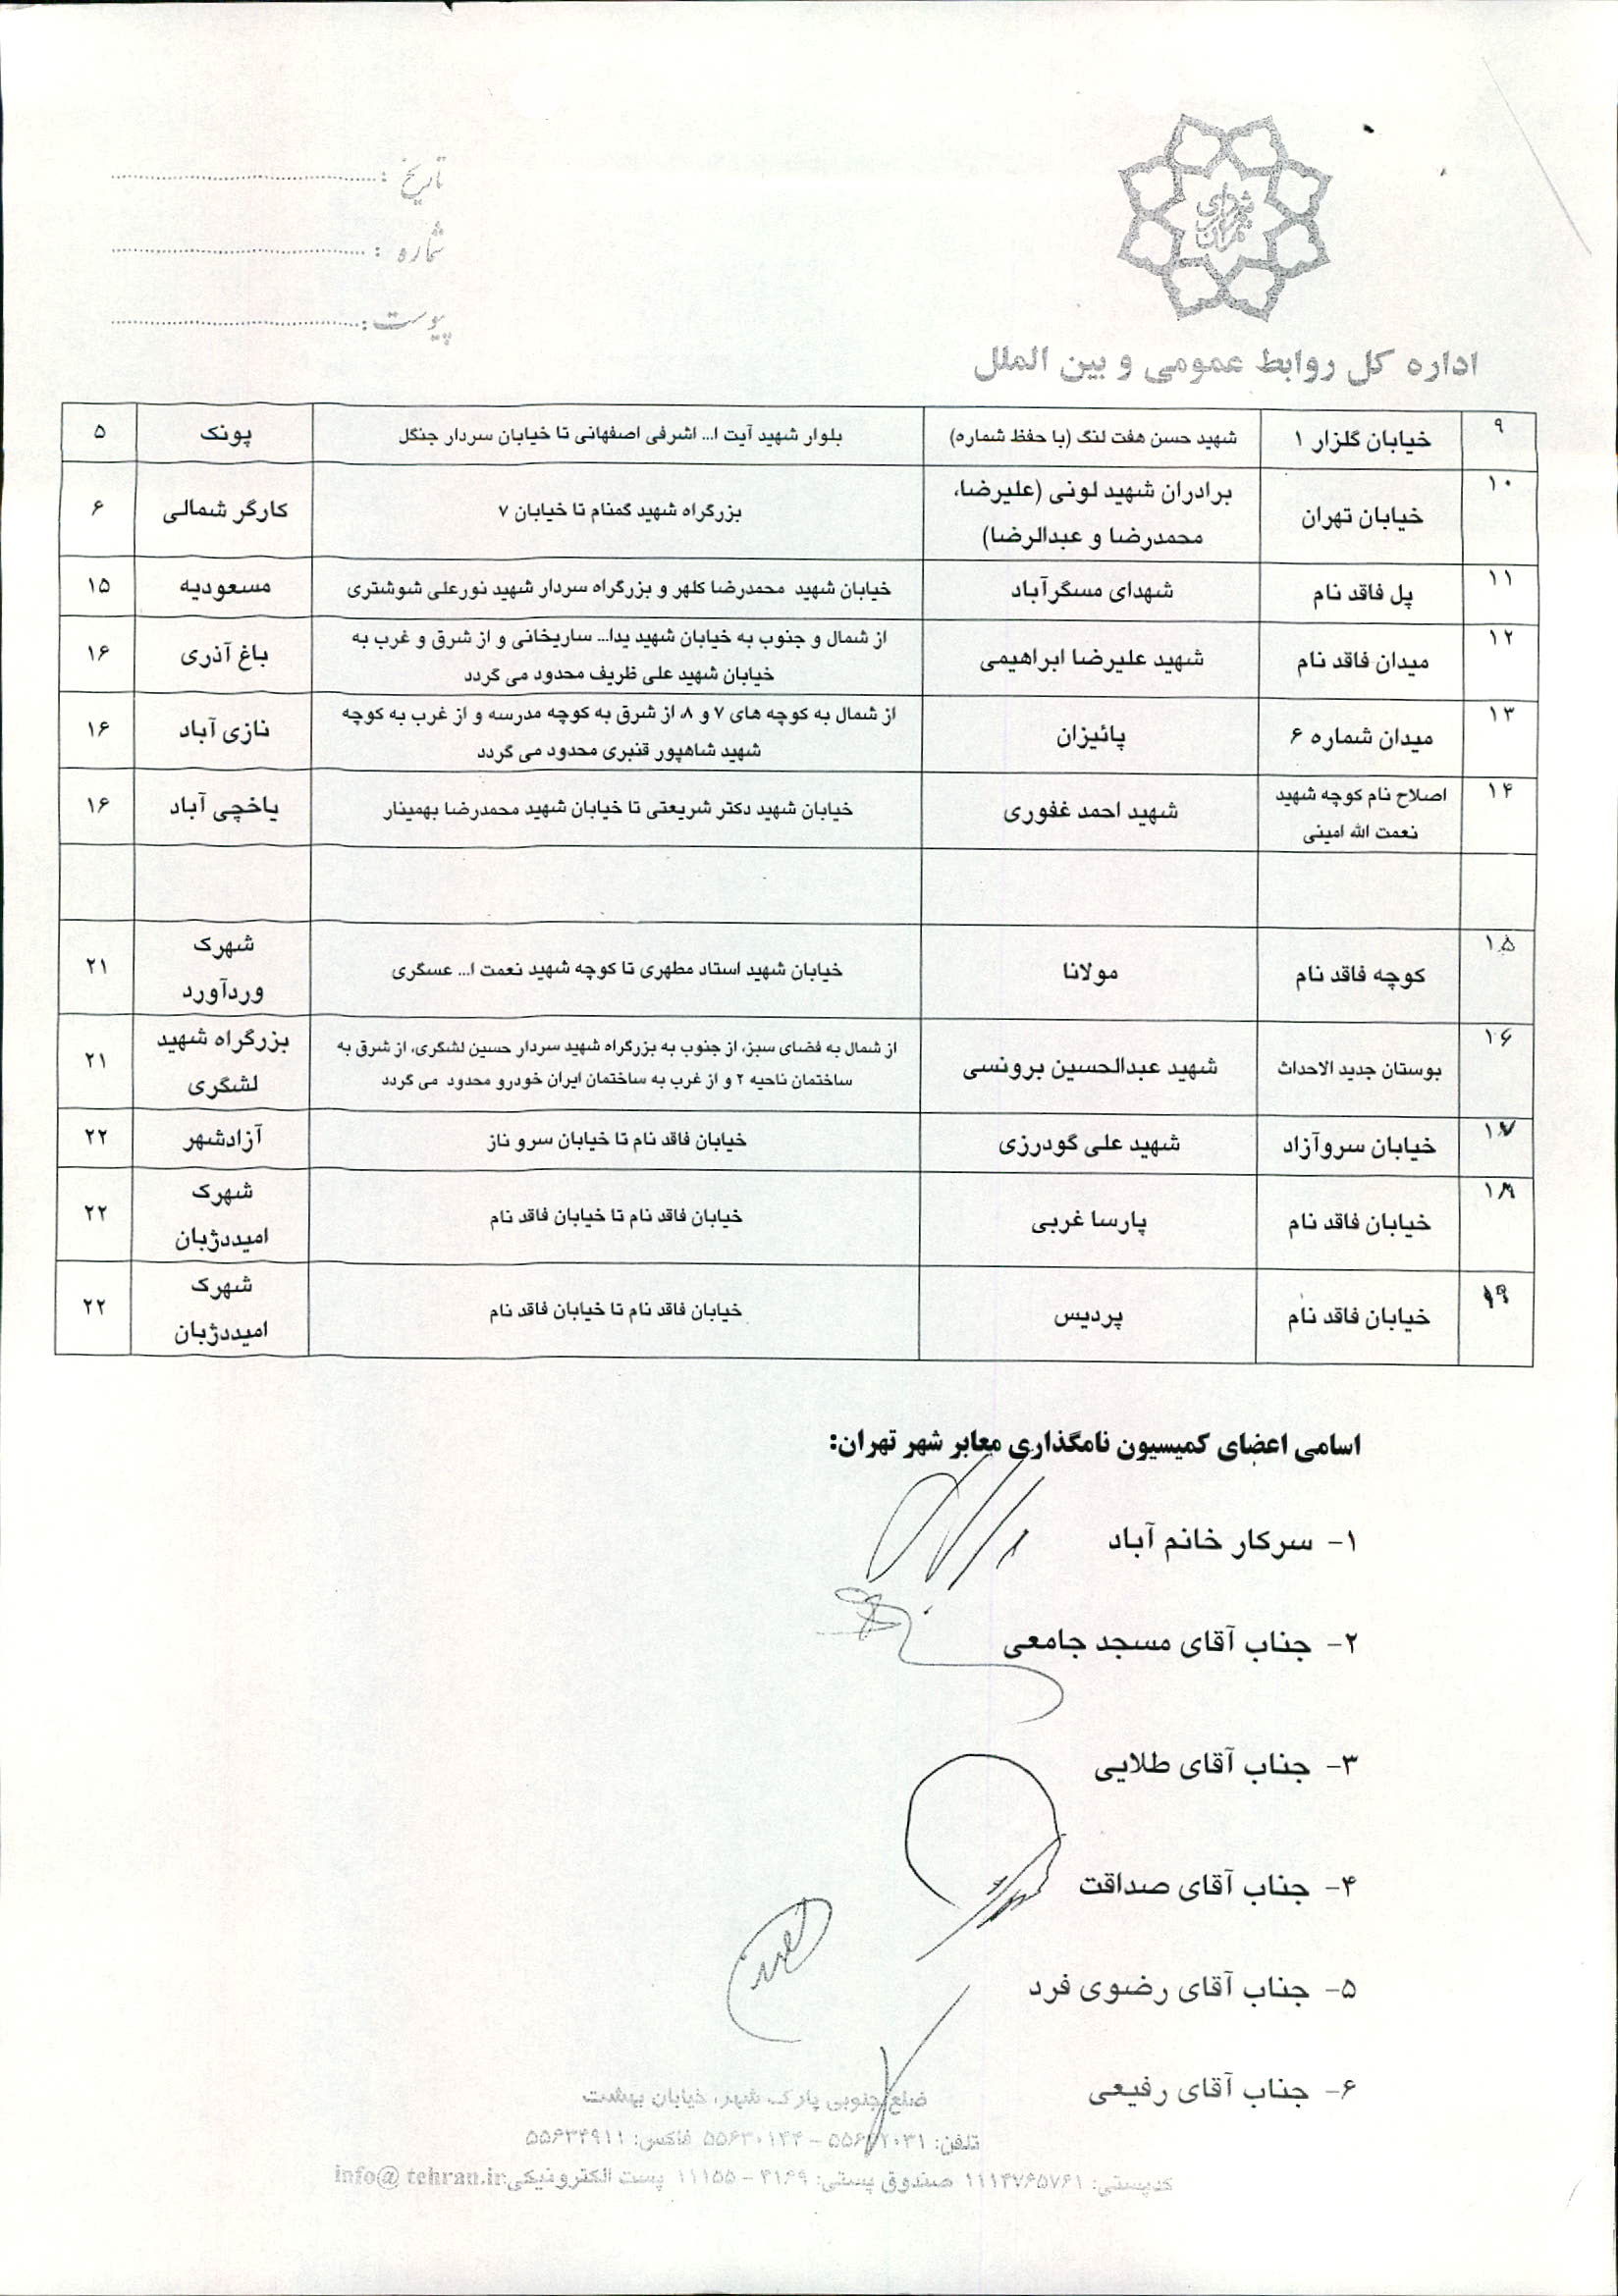 تاریخ :
شماره :
پیوست:
شهرداری تهران
اداره کل روابط عمومی و بین الملل
۹ خیابان گلزار ۱ شهید حسن هفت لنگ (با حفظ شماره) بلوار شهید آیت ا... اشرفی اصفهانی تا خیابان سردار جنگل پونک ۵
۱۰ خیابان تهران برادران شهید لونی (علیرضا، بزرگراه شهید گمنام تا خیابان ۷ کارگر شمالی ۶
محمدرضا و عبدالرضا)
۱۱ پل فاقد نام شهدای مسگرآباد خیابان شهید محمدرضا کلهر و بزرگراه سردار شهید نورعلی شوشتری مسعودیه ۱۵
۱۲ میدان فاقد نام شهید علیرضا ابراهیمی از شمال و جنوب به خیابان شهید یدا... ساریخانی و از شرق و غرب به باغ آذری ۱۶
خیابان شهید علی ظریف محدود می گردد
۱۳ میدان شماره ۶ پائیزان از شمال به کوچه های ۷ و ۸، از شرق به کوچه مدرسه و از غرب به کوچه نازی آباد ۱۶
شهید شاهپور قنبری محدود می گردد
۱۴ اصلاح نام کوچه شهید شهید احمد غفوری خیابان شهید دکتر شریعتی تا خیابان شهید محمدرضا بهمینار یاخچی آباد ۱۶
نعمت الله امینی
۱۵ کوچه فاقد نام مولانا خیابان شهید استاد مطهری تا کوچه شهید نعمت ا... عسگری شهرک ۲۱
وردآورد
۱۶ بوستان جدید الاحداث شهید عبدالحسین برونسی از شمال به فضای سبز، از جنوب به بزرگراه شهید سردار حسین لشگری، از شرق به بزرگراه شهید ۲۱
ساختمان ناحیه ۲ و از غرب به ساختمان ایران خودرو محدود می گردد لشگری
۱۷ خیابان سروآزاد شهید علی گودرزی خیابان فاقد نام تا خیابان سرو ناز آزادشهر ۲۲
۱۸ خیابان فاقد نام پارسا غربی خیابان فاقد نام تا خیابان فاقد نام شهرک ۲۲
امیددژبان
۱۹ خیابان فاقد نام پردیس خیابان فاقد نام تا خیابان فاقد نام شهرک ۲۲
امیددژبان
اسامی اعضای کمیسیون نامگذاری معابر شهر تهران:
۱- سرکار خانم آباد
۲- جناب آقای مسجد جامعی
۳- جناب آقای طلایی
۴- جناب آقای صداقت
۵- جناب آقای رضوی فرد
۶- جناب آقای رفیعی
ضلع جنوبی پارک شهر، خیابان بهشت
تلفن: - ۵۵۶۳۰۱۴۴ فاکس: ۵۵۶۳۴۹۱۱
کدپستی: ۱۱۱۴۷۶۵۷۶۱ صندوق پستی: ۴۱۶۹ - ۱۱۱۵۵ پست الکترونیکی:info@ tehran.ir